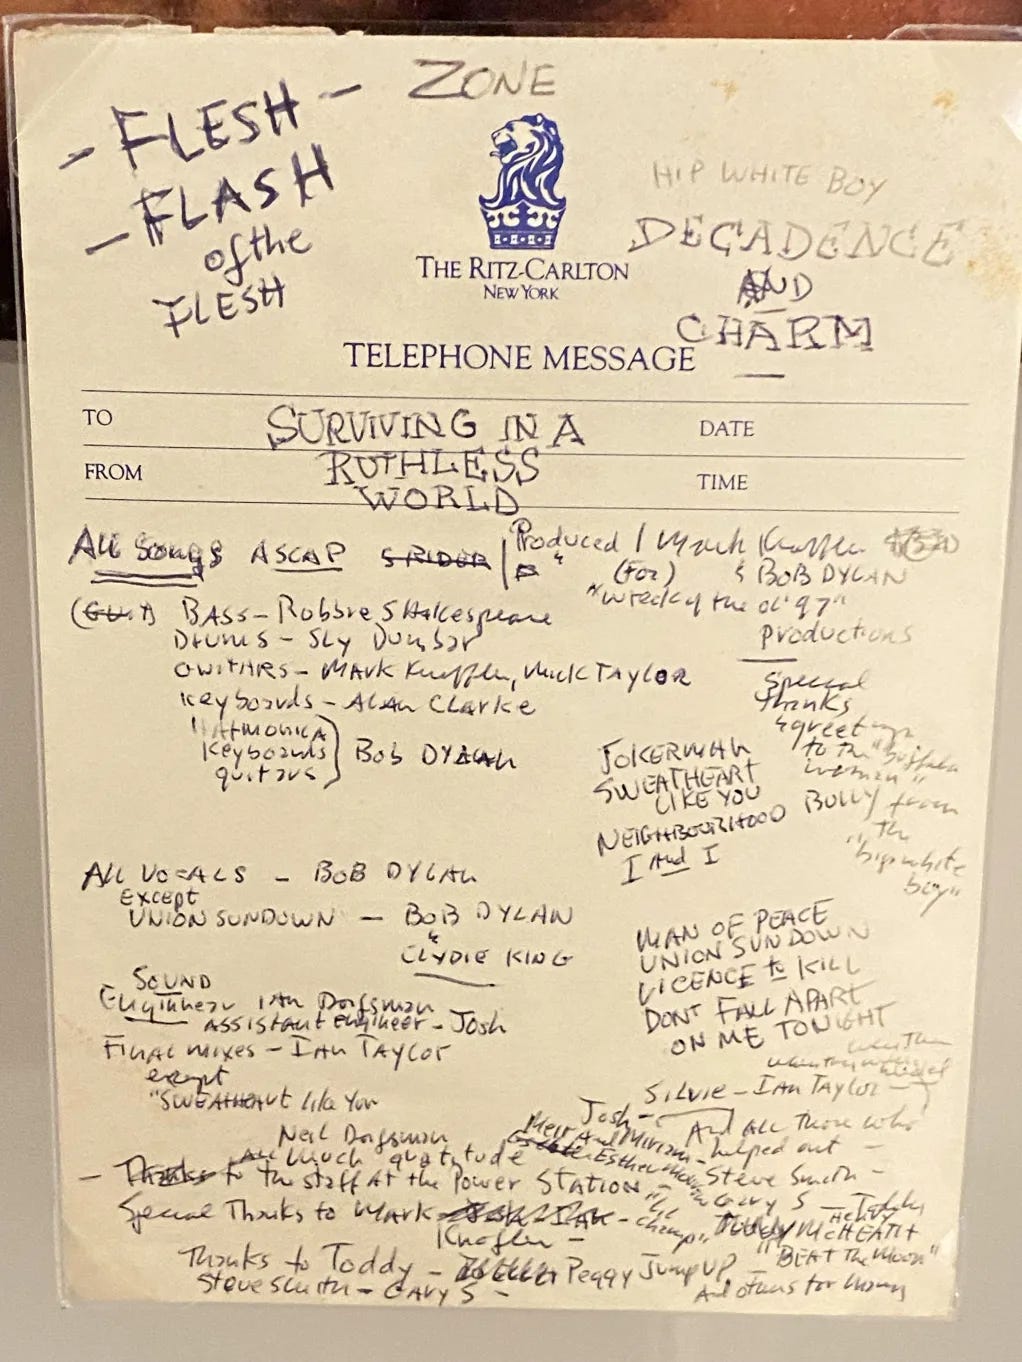 ZONE
- FLESH -
- FLASH
of the
FLESH
HIP WHITE BOY
DECADENCE
AND
CHARM
THE RITZ-CARLTON
NEW YORK
TELEPHONE MESSAGE
TO
DATE
FROM
TIME
SURVIVING IN A
RUTHLESS
WORLD
All Songs ASCAP
Produced / Mark Knopfler
(For) & BOB DYLAN
"wreck of the ol' 97"
Productions
(GUIT) BASS - Robbie Shakespeare
DRUMS - Sly Dunbar
GUITARS - Mark Knopfler, Mick TAYLOR
Keyboards - Alan Clarke
HARMONICA
Keyboards
guitars
Bob DYLAN
Special
thanks
& greetings
to the "buffalo
woman"
from
"the
big white
boy"
JOKERMAN
SWEATHEART
LIKE YOU
NEIGHBOURHOOD BULLY
I And I
MAN OF PEACE
UNION SUNDOWN
LICENCE to KILL
DONT FALL APART
ON ME TONIGHT
All VOCALS - BOB DYLAN
EXCEPT
UNION SUNDOWN - BOB DYLAN
&
CLYDIE KING
SOUND
Enginnear Ian Dorfsman
Assistant Engineer - Josh
Final mixes - Ian Taylor
except
"SWEATHEART like You
Neil Dorfsman
Silvie - Ian Taylor -
Josh -
And all those who
helped out -
Meir And Miriam -
Esther
Steve Smith -
Gary S -
All Much gratitude
- Thanks to the staff At the Power Station -
Special Thanks to Mark
Knofler -
"the champ"
McHEATH
"BEAT the Moon"
Thanks to Toddy - Peggy Jump UP -
Steve Smith - Gary S -
And others for